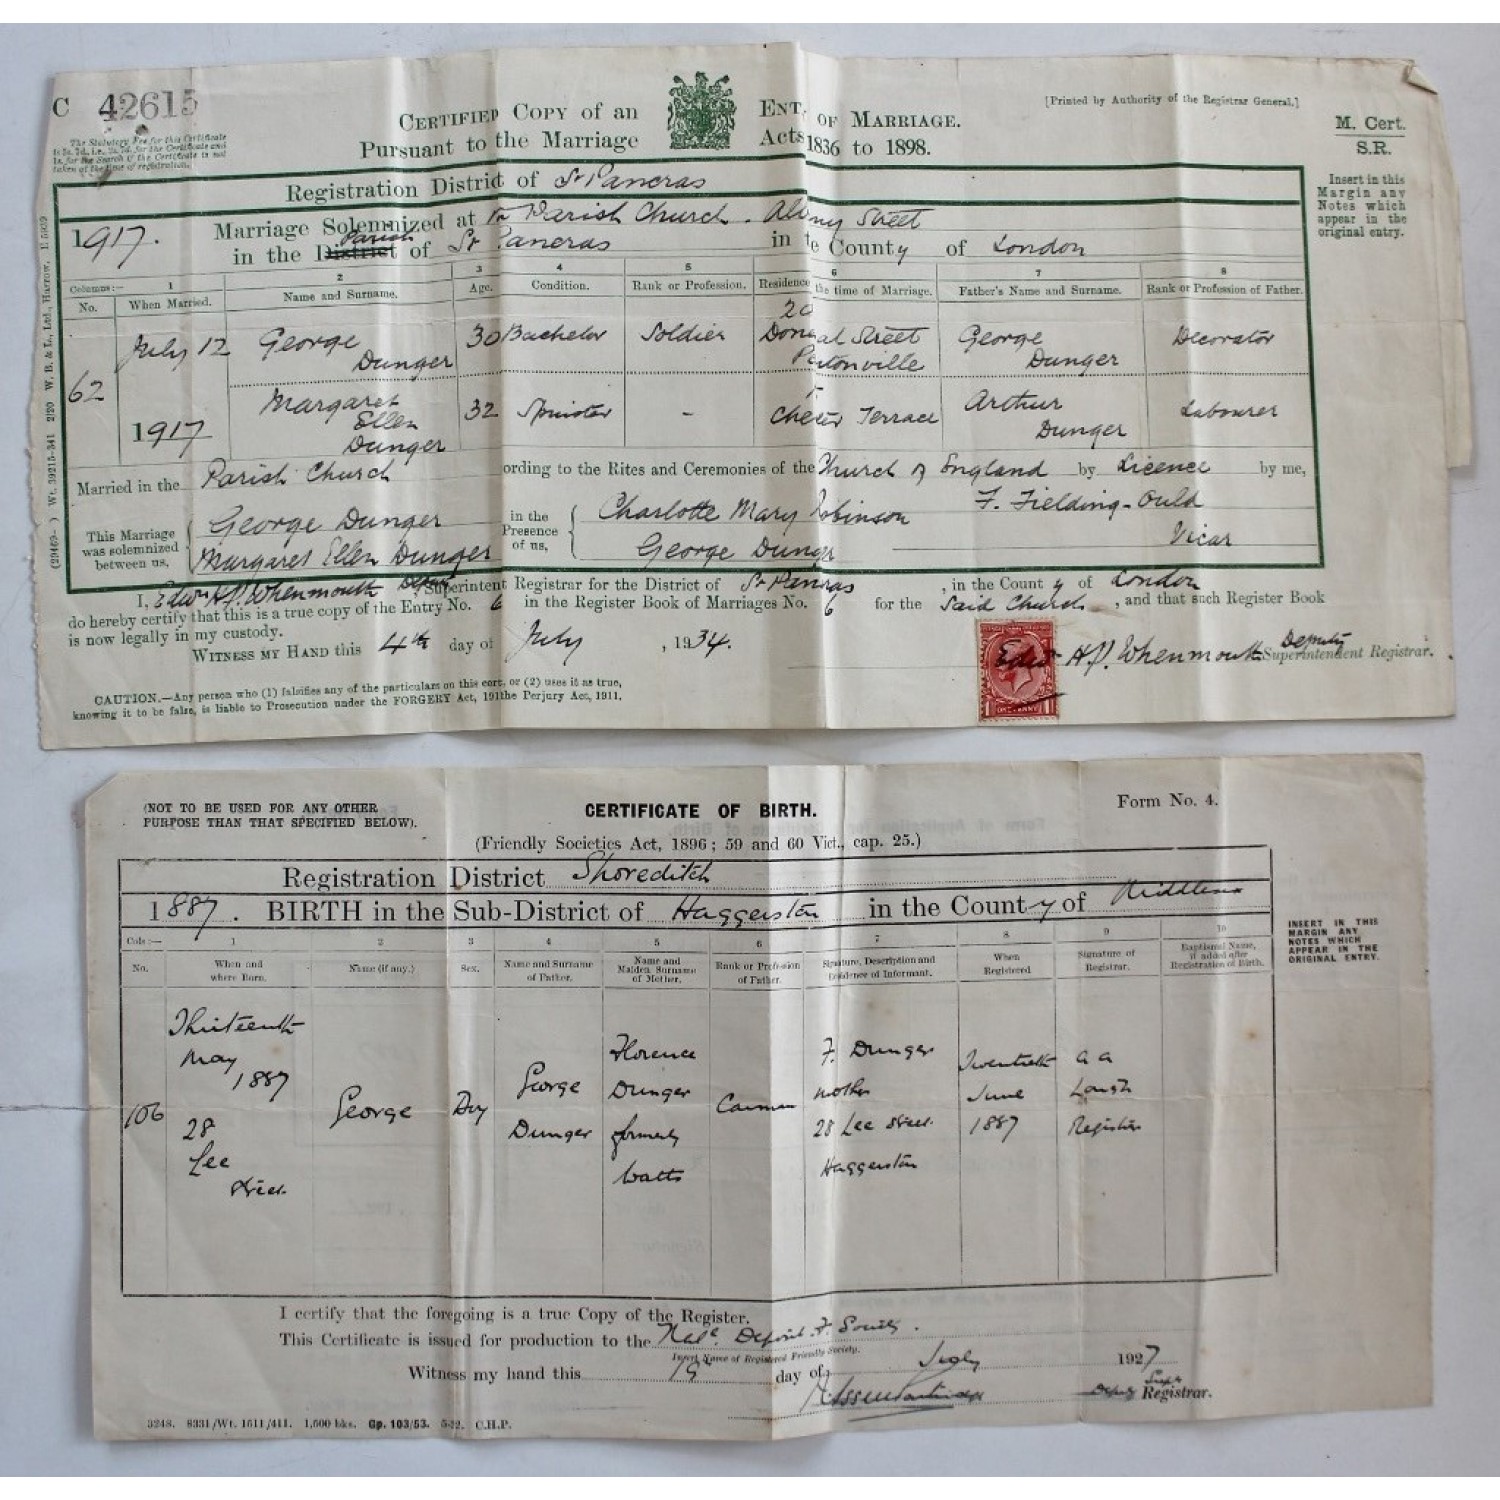 C 42615
CERTIFIED COPY OF AN ENT. OF MARRIAGE.
[Printed by Authority of the Registrar General.]
Pursuant to the Marriage Acts 1836 to 1898.
M. Cert.
S.R.
The Statutory Fee for this Certificate
is 2s. 7d.
taken at the time of registration.
Insert in this
Margin any
Notes which
appear in the
original entry.
Registration District of St Pancras
1917. Marriage Solemnized at Parish Church. Albany Street
in the District Parish of St Pancras in the County of London
Columns:— 1 2 3 4 5 6 7 8
No. When Married. Name and Surname. Age. Condition. Rank or Profession. Residence the time of Marriage. Father's Name and Surname. Rank or Profession of Father.
62 July 12 1917
George Dunger 30 Bachelor Soldier 20 Donegal Street Pentonville George Dunger Decorator
Margaret Ellen Dunger 32 Spinster - Chester Terrace Arthur Dunger Labourer
Married in the Parish Church ording to the Rites and Ceremonies of the Church of England by Licence by me,
F. Fielding-Ould
Vicar
This Marriage
was solemnized
between us,
George Dunger
Margaret Ellen Dunger
in the
Presence
of us,
Charlotte Mary Robinson
George Dunger
I, Edwn H.P. Whenmouth Deputy Superintent Registrar for the District of St Pancras, in the County of London
do hereby certify that this is a true copy of the Entry No. 6 in the Register Book of Marriages No. 6 for the Said Church, and that such Register Book
is now legally in my custody.
WITNESS MY HAND this 4th day of July, 1934.
Edwn H.P. Whenmouth Deputy Superintendent Registrar.
ONE PENNY
CAUTION.—Any person who (1) falsifies any of the particulars on this cert, or (2) uses it as true,
knowing it to be false, is liable to Prosecution under the FORGERY Act, 191 the Perjury Act, 1911.
(29469—) Wt. 39215-341 2/20 W. B. & L., Ltd., Harrow.
(NOT TO BE USED FOR ANY OTHER
PURPOSE THAN THAT SPECIFIED BELOW).
CERTIFICATE OF BIRTH.
Form No. 4.
(Friendly Societies Act, 1896; 59 and 60 Vict., cap. 25.)
Registration District Shoreditch
1887. BIRTH in the Sub-District of Haggerston in the County of Middlesex
Cols:— 1 2 3 4 5 6 7 8 9 10
No. When and where Born. Name (if any.) Sex. Name and Surname of Father. Name and Maiden Surname of Mother. Rank or Profession of Father. Signature, Description and Residence of Informant. When Registered. Signature of Registrar. Baptismal Name, if added after Registration of Birth.
INSERT IN THIS
MARGIN ANY
NOTES WHICH
APPEAR IN THE
ORIGINAL ENTRY.
106
Thirteenth
May
1887
28
Lee
Street
George
Boy
George
Dunger
Florence
Dunger
formerly
Watts
Carman
F. Dunger
mother
28 Lee Street
Haggerston
Twentieth
June
1887
Registrar
I certify that the foregoing is a true Copy of the Register.
This Certificate is issued for production to the Natl. Deposit F. Society.
Insert Name of Registered Friendly Society.
Witness my hand this 19 day of July 1927
Deputy Supt Registrar.
3248. 8331/Wt. 1611/411. 1,600 bks. Gp. 103/53. 5-22. C.H.P.